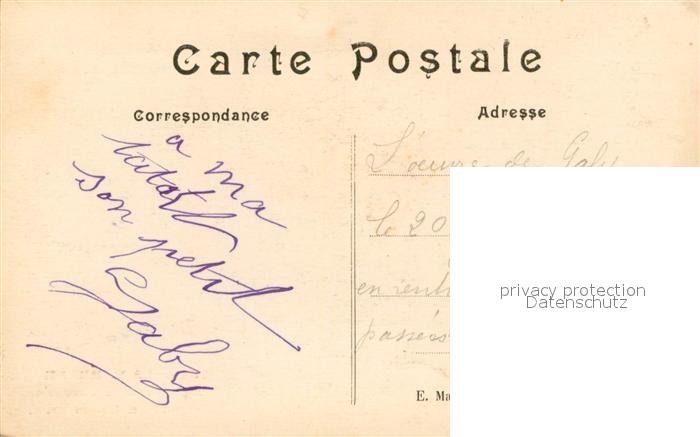 Carte Postale
Correspondance
Adresse
a ma
son petit
Gaby
L'œuvre de Gaby
le 20
en rentr
passées
E. Ma
privacy protection
Datenschutz